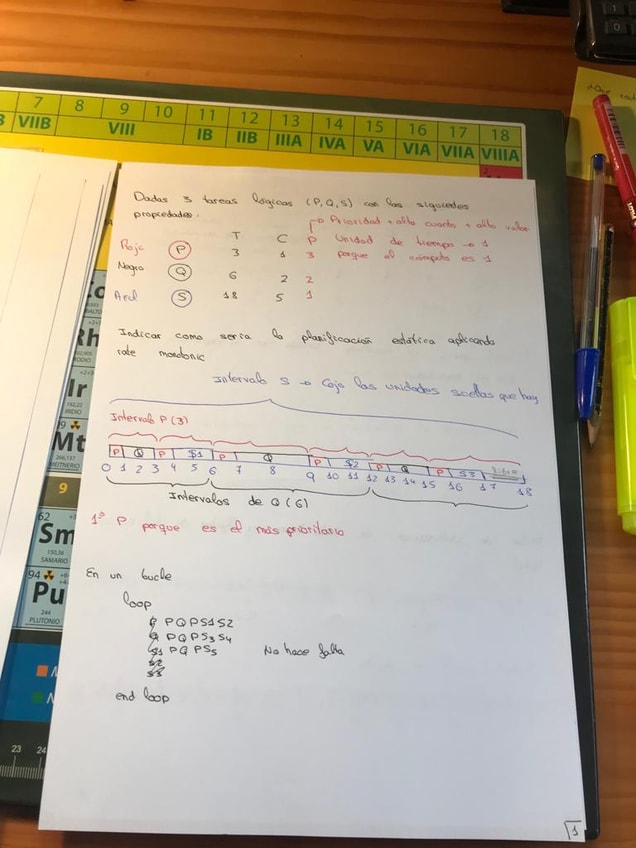 7 8 9 10 11 12 13 14 15 16 17 18
VIIB VIII IB IIB IIIA IVA VA VIA VIIA VIIIA
Dadas 3 tareas lógicas (P,Q,S) con las siguientes
propiedades:
→ Prioridad + alto cuanto + alto valor
T C P Unidad de tiempo → 1
Rojo P 3 1 3 porque el cómputo es 1
Negro Q 6 2 2
Azul S 18 5 1
Indicar como seria la planificación estática aplicando
rate monotonic
Intervalo S → Cojo las unidades sueltas que hay
Intervalo P (3)
P Q P S1 P Q P S2 P Q P S3
0 1 2 3 4 5 6 7 8 9 10 11 12 13 14 15 16 17 18
Intervalos de Q (6)
1º P porque es el más prioritario
En un bucle
loop
P Q P S1 S2
P Q P S3 S4
P Q P S5 No hace falta
end loop
1
Rh
RODIO
Ir
IRIDIO
Mt
MEITNERIO
9
62
Sm
150,36
SAMARIO
94
Pu
244
PLUTONIO
23 24